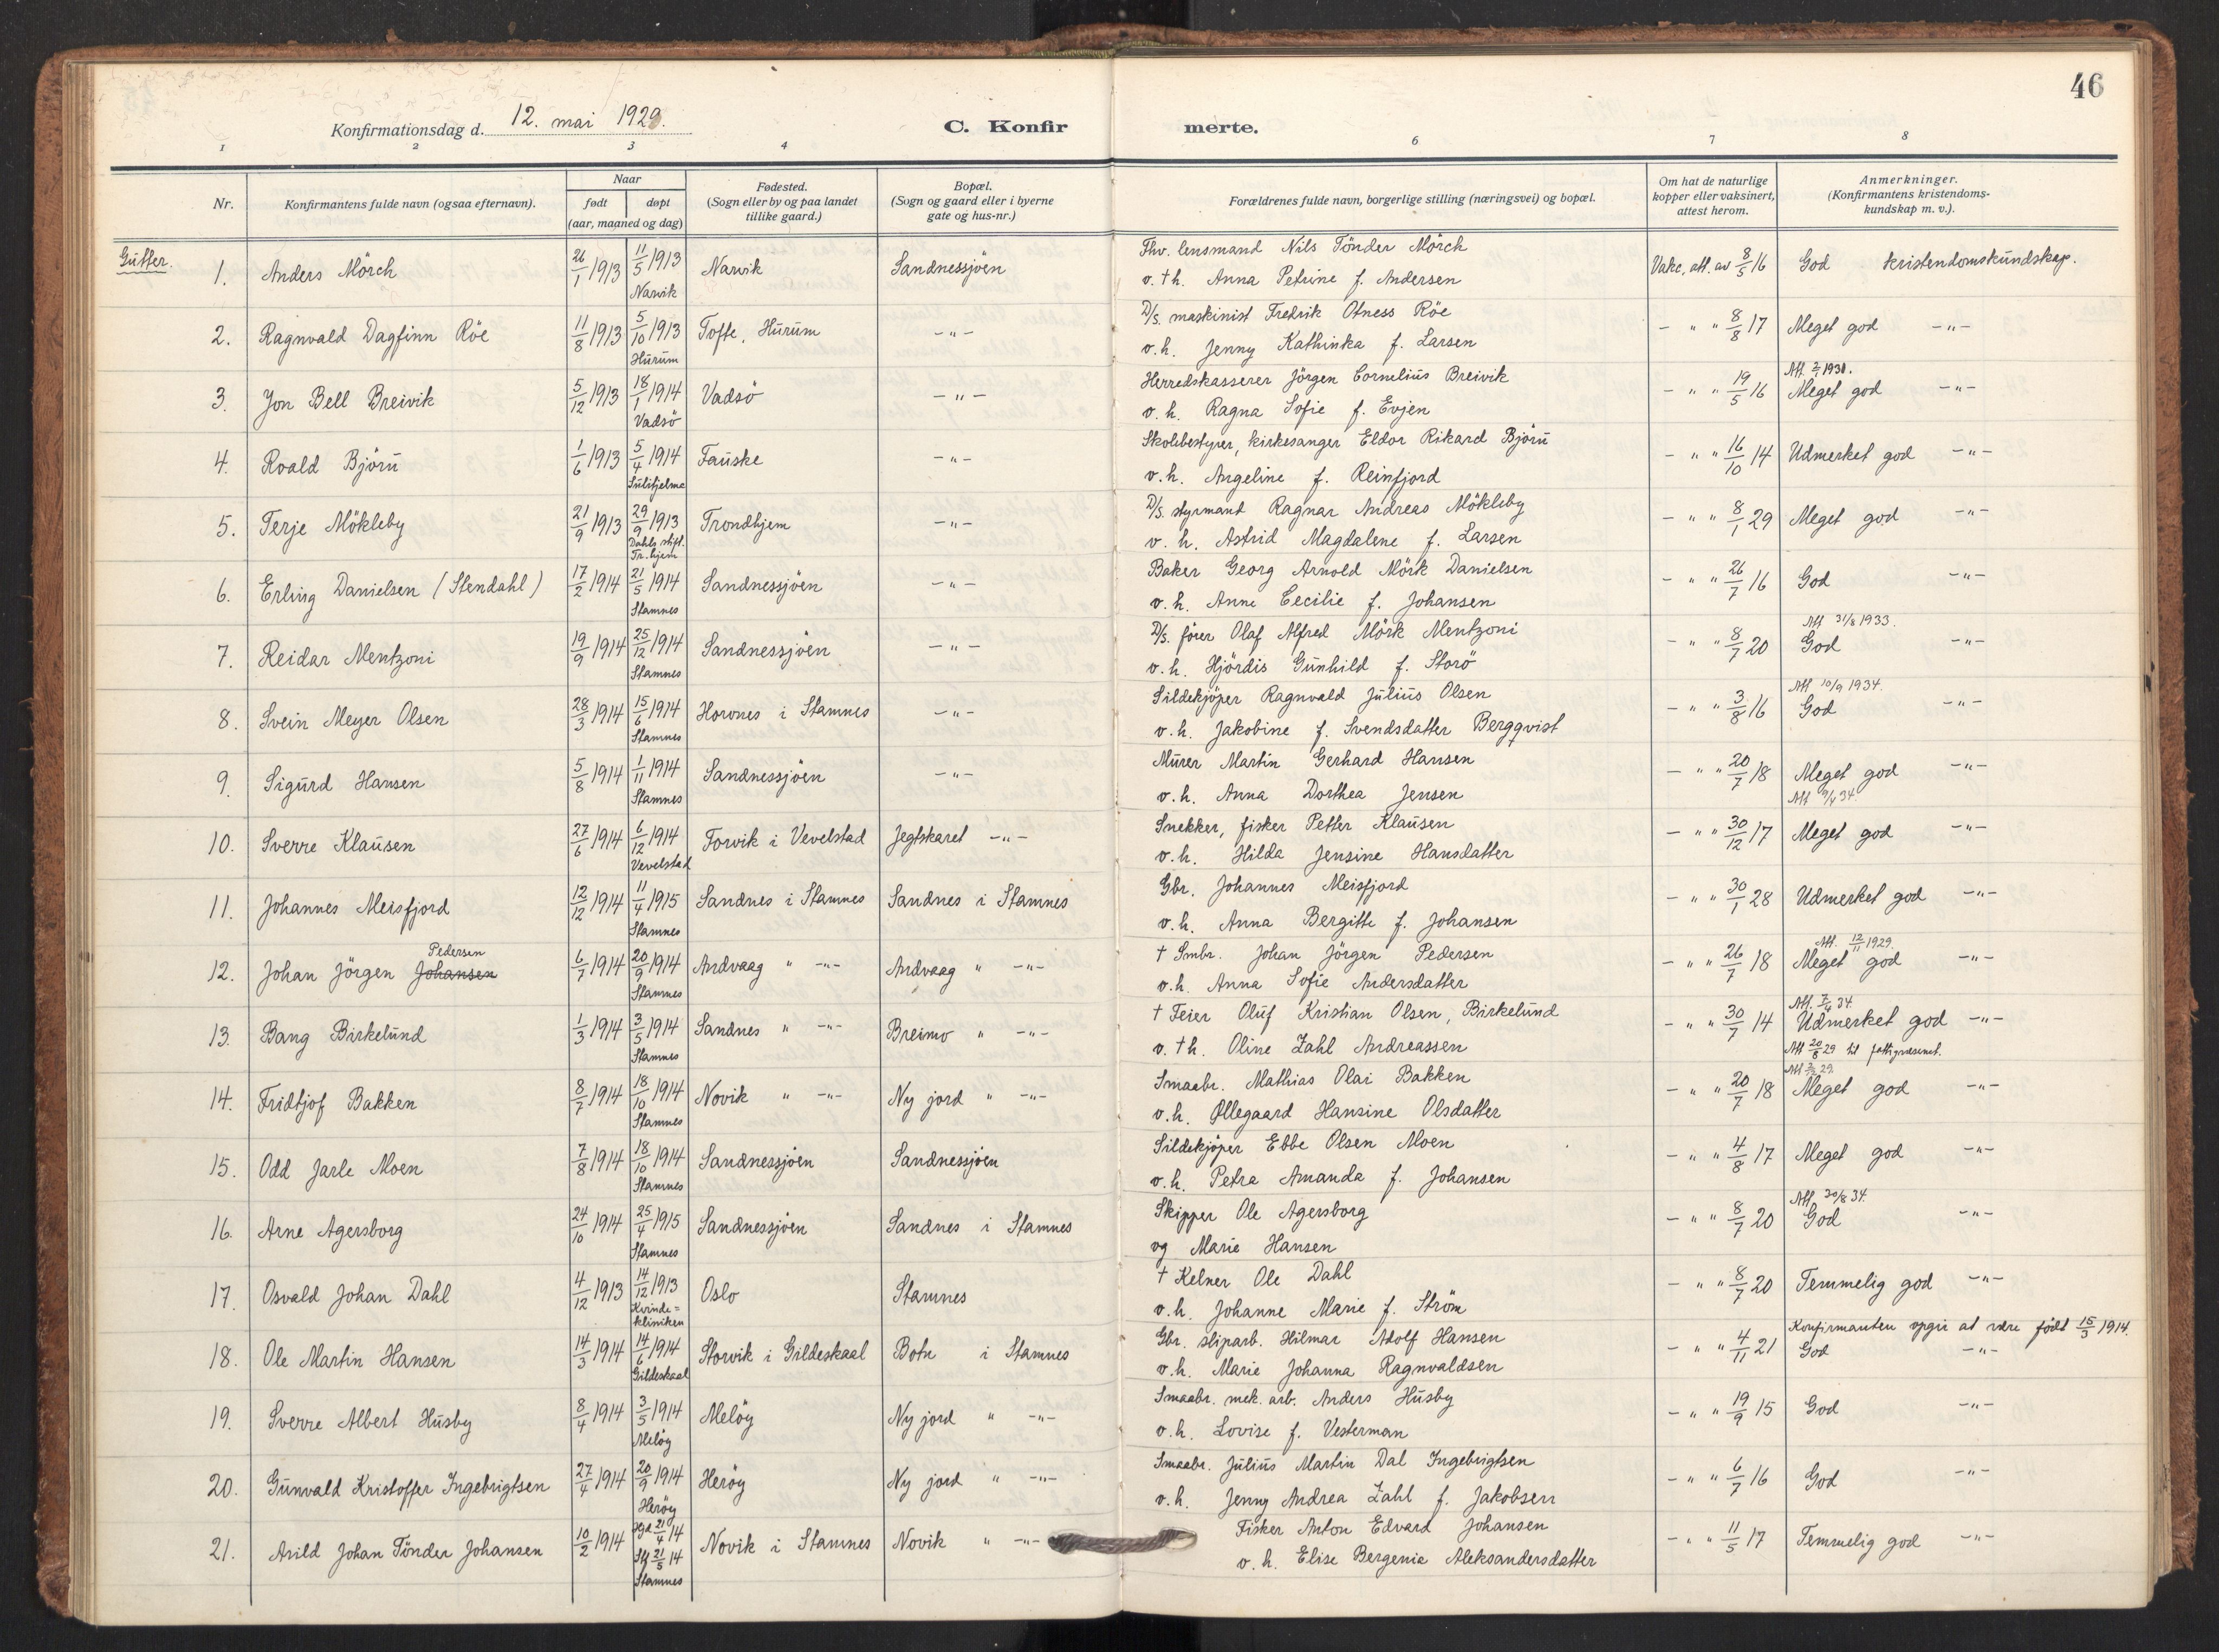 46
Konfirmationsdag d. 12. mai 1929.
C. Konfir merte.
1 2 3 4 6 7 8
Nr.
Konfirmantens fulde navn (ogsaa efternavn).
Naar
født døpt
(aar, maaned og dag)
Fødested.
(Sogn eller by og paa landet
tillike gaard.)
Bopæl.
(Sogn og gaard eller i byerne
gate og hus-nr.)
Forældrenes fulde navn, borgerlige stilling (næringsvei) og bopæl.
Om hat de naturlige
kopper eller vaksinert,
attest herom.
Anmerkninger.
(Konfirmantens kristendoms-
kundskap m. v.).
Gutter.
1. Anders Mörch 26/1 1913 11/5 1913 Narvik Narvik Sandnessjöen
Fhv. lensmand Nils Tönder Mörch
v. † h. Anna Petrine f. Andersen
Vakc. att. av 8/5 16 God kristendomskundskap.
2. Ragnvald Dagfinn Röe 11/8 1913 5/10 1913 Hurum Tofte, Hurum -"-
D/S. maskinist Fredrik Otness Röe
v. h. Jenny Kathinka f. Larsen
- " " 8/8 17 Meget god -"-
3. Jon Bell Breivik 5/12 1913 18/1 1914 Vadsö Vadsö -"-
Herredskasserer Jörgen Cornelius Breivik
v. h. Ragna Sofie f. Evjen
- " " 19/5 16 Meget god -"-
4. Roald Björū 1/6 1913 5/4 1914 Sulitjelma Fauske -"-
Skolebestyrer, kirkesanger Eldor Rikard Björū
v. h. Angeline f. Reinfjord
- " " 16/10 14 Udmerket god -"-
5. Terje Mökleby 21/9 1913 29/9 1913 Dahls stift. Tr.hjem Trondhjem -"-
D/S. styrmand Ragnar Andreas Mökleby
v. h. Astrid Magdalene f. Larsen
- " " 8/1 29 Meget god -"-
6. Erling Danielsen (Stendahl) 17/2 1914 21/5 1914 Stamnes Sandnessjöen -"-
Baker Georg Arnold Mörk Danielsen
v. h. Anne Cecilie f. Johansen
- " " 26/7 16 God -"-
7. Reidar Mentzoni 19/9 1914 25/12 1914 Stamnes Sandnessjöen -"-
D/S. förer Olaf Alfred Mörk Mentzoni
v. h. Hjördis Gunhild f. Storö
- " " 8/7 20 Att 31/8 1933. God -"-
8. Svein Meyer Olsen 28/3 1914 15/6 1914 Stamnes Horvnes i Stamnes -"-
Sildekjöper Ragnvald Julius Olsen
v. h. Jakobine f. Svendsdatter Bergqvist
- " " 3/8 16 Att 10/9 1934. God -"-
9. Sigurd Hansen 5/8 1914 1/11 1914 Stamnes Sandnessjöen -"-
Murer Martin Gerhard Hansen
v. h. Anna Dorthea Jensen
- " " 20/7 18 Meget god -"-
10. Sverre Klausen 27/6 1914 6/12 1914 Vevelstad Forvik i Vevelstad Jegtskaret -"-
Snekker, fisker Petter Klausen
v. h. Hilda Jensine Hansdatter
- " " 30/12 17 Meget god -"-
11. Johannes Meisfjord 12/12 1914 11/4 1915 Stamnes Sandnes i Stamnes Sandnes i Stamnes
Gbr. Johannes Meisfjord
v. h. Anna Bergitte f. Johansen
- " " 30/1 28 Udmerket god -"-
12. Johan Jörgen Johansen Pedersen 6/7 1914 20/9 1914 Stamnes Andvaag " -"- Andvaag " -"-
† Smbr. Johan Jörgen Pedersen
v. h. Anna Sofie Andersdatter
- " " 26/7 18 Att. 12/11 1929. Meget god -"-
13. Bang Birkelund 1/3 1914 3/5 1914 Stamnes Sandnes " -"- Breimo " -"-
† Feier Oluf Kristian Olsen, Birkelund
v. † h. Oline Zahl Andreassen
- " " 30/7 14 Udmerket god -"-
Att 20/8 29 til fattigvæsenet.
14. Fridtjof Bakken 8/7 1914 18/10 1914 Stamnes Novik " -"- Ny jord " -"-
Smaabr. Mathias Olai Bakken
v. h. Øllegaard Hansine Olsdatter
- " " 20/7 18 Meget god -"-
15. Odd Jarle Moen 7/8 1914 18/10 1914 Stamnes Sandnessjöen Sandnessjöen
Sildekjöper Ebbe Olsen Moen
v. h. Petra Amanda f. Johansen
- " " 4/8 17 Meget god -"-
16. Arne Agersborg 24/10 1914 25/4 1915 Stamnes Sandnessjöen Sandnes i Stamnes
Skipper Ole Agersborg
og Marie Hansen
- " " 8/7 20 Att. 30/8 34. God -"-
17. Osvald Johan Dahl 4/12 1913 14/12 1913 Kvinde= kliniken Oslo Stamnes
† Kelner Ole Dahl
v. h. Johanne Marie f. Ström
- " " 8/7 20 Temmelig god -"-
18. Ole Martin Hansen 14/3 1914 14/6 1914 Gildeskaal Storvik i Gildeskaal Botn i Stamnes
Gbr. sliparb. Hilmar Adolf Hansen
v. h. Marie Johanna Ragnvaldsen
- " " 4/11 21 Konfirmanten opgir at være født 15/3 1914. God -"-
19. Sverre Albert Husby 8/4 1914 3/5 1914 Melöy Melöy Ny jord " -"-
Smaabr. mek. arb. Anders Husby
v. h. Lovise f. Vesterman
- " " 19/9 15 God -"-
20. Gunvald Kristoffer Ingebrigtsen 27/4 1914 20/9 1914 Heröy Heröy Ny jord " -"-
Smaabr. Julius Martin Dal Ingebrigtsen
v. h. Jenny Andrea Zahl f. Jakobsen
- " " 6/7 16 God -"-
21. Arild Johan Tönder Johansen 10/2 1914 Hjd 21/4 14 21/5 14 Stamnes Novik i Stamnes Novik " -"-
Fisker Anton Edvard Johansen
v. h. Elise Bergenie Aleksandersdatter
- " " 11/5 17 Temmelig god -"-